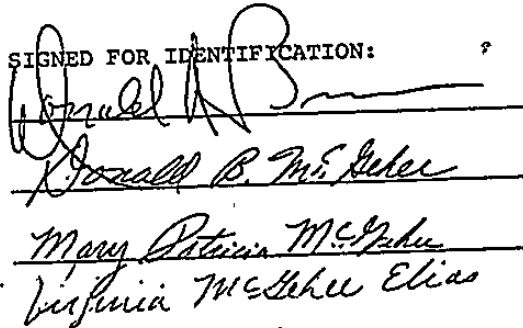 SIGNED FOR IDENTIFICATION:
Donald
Donald B. McGehee
Mary Patricia McGehee
Virginia McGehee Elias